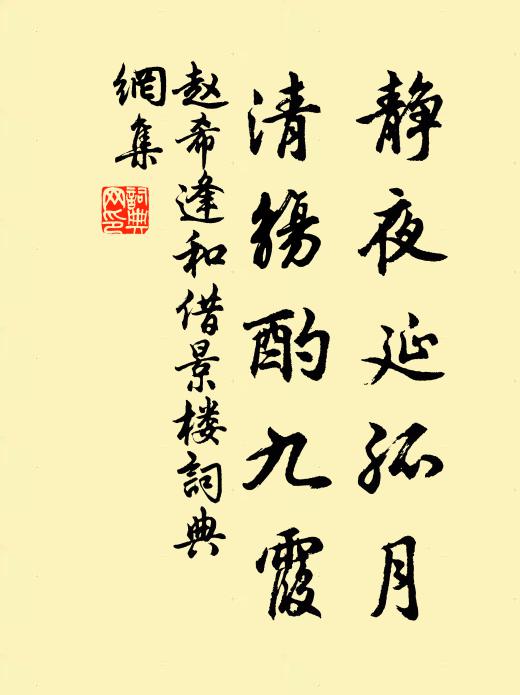 静夜延孤月
清觞酌九霞
赵希逢和借景楼詞典
網集
詞典網印